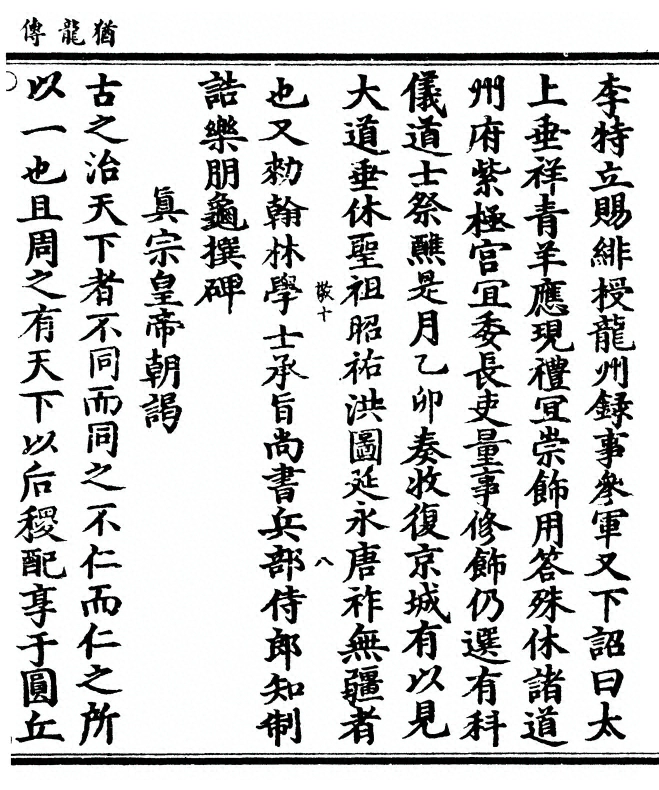 猶龍傳
李特立賜緋授龍州録事參軍又下詔曰太
上垂祥青羊應現禮冝崇飾用答殊休諸道
州府紫極宮冝委長吏量事修飾仍選有科
儀道士祭醮是月乙卯奏收復京城有以見
大道垂休聖祖昭祐洪圖延永唐祚無疆者
敬十
八
也又勑翰林學士承旨尚書兵部侍郎知制
誥樂朋龜撰碑
真宗皇帝朝謁
古之治天下者不同而同之不仁而仁之所
以一也且周之有天下以后稷配享于圓丘